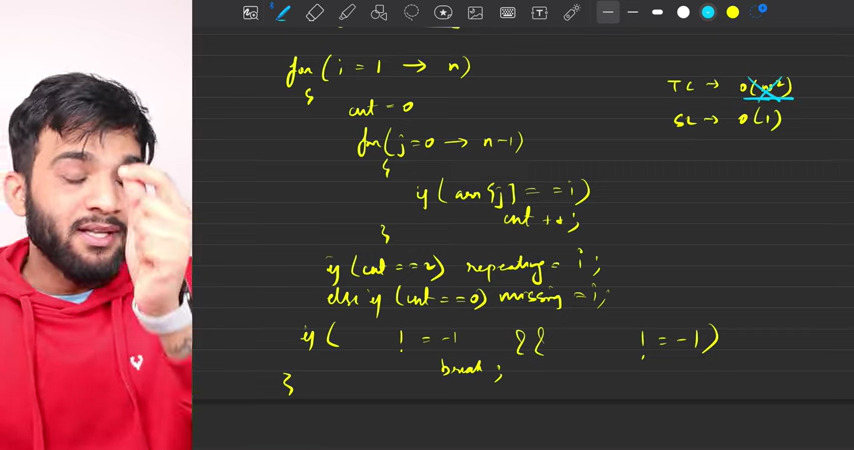 for( i = 1 → n)
{
cnt = 0
for( j = 0 → n-1)
{
if ( arr[j] == i)
cnt ++;
}
if (cnt == 2) repeating = i;
else if (cnt == 0) missing = i;
if ( != -1 && != -1)
break;
}
TC → O(n²)
SC → O(1)